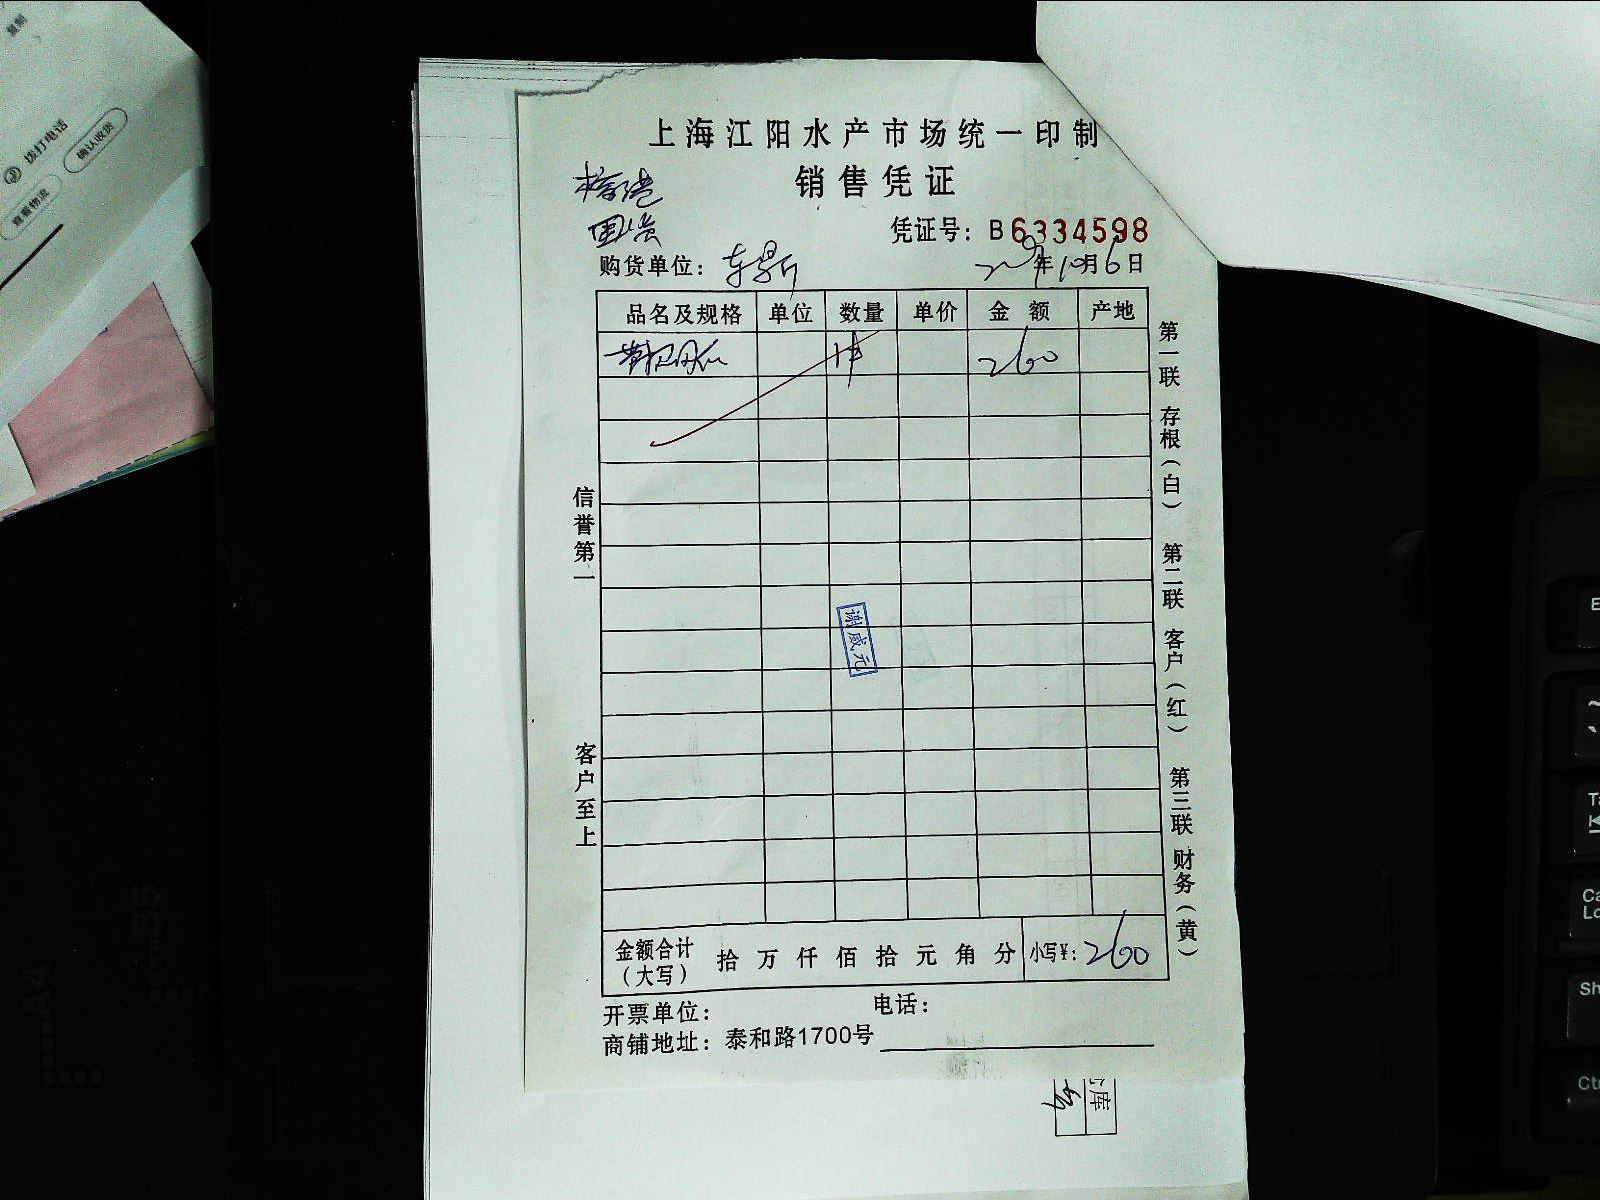 复制
拨打电话
确认收货
查看物流
上海江阳水产市场统一印制
销售凭证
凭证号：B6334598
购货单位：
年10月6日
品名及规格 单位 数量 单价 金额 产地
1件 260
信誉第一
客户至上
谢威元
第一联 存根（白） 第二联 客户（红） 第三联 财务（黄）
金额合计（大写） 拾 万 仟 佰 拾 元 角 分 小写¥：260
开票单位： 电话：
商铺地址：泰和路1700号
库
B5
A4